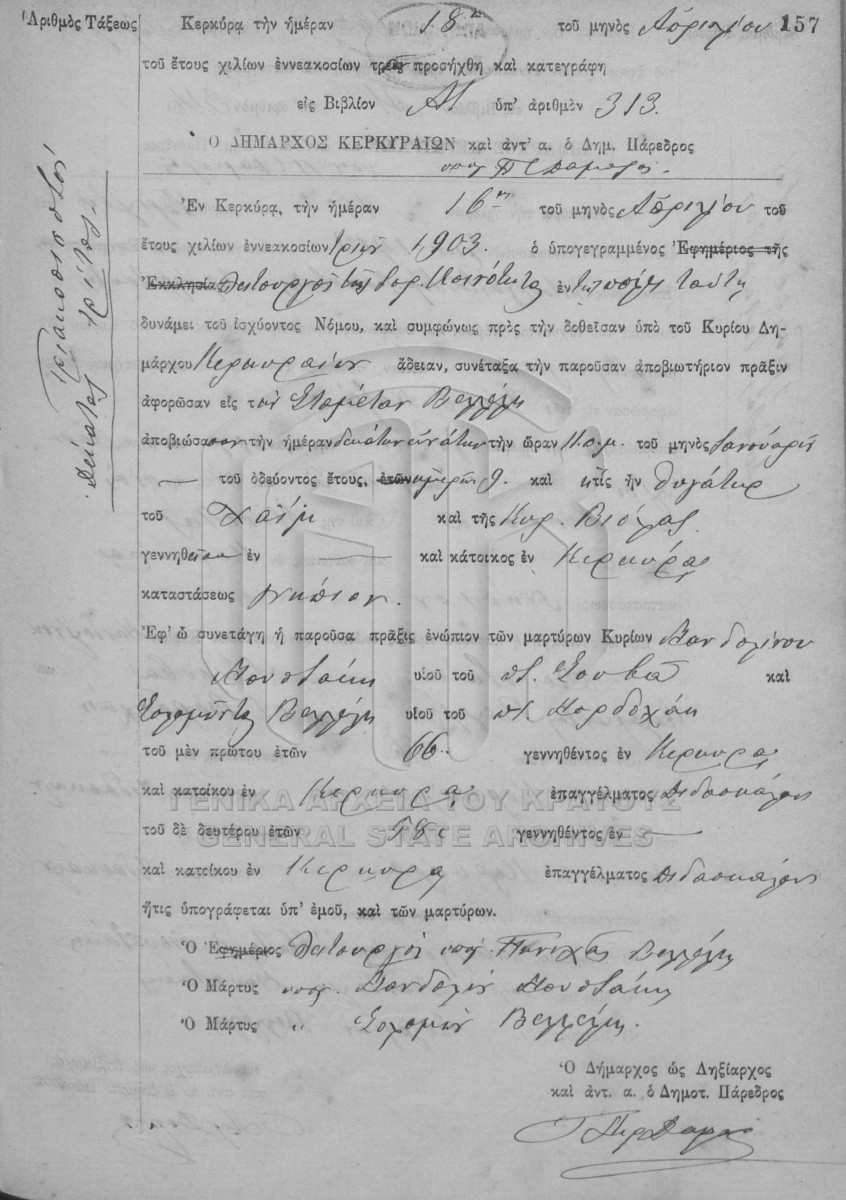 Ἀριθμὸς Τάξεως
Κερκύρᾳ τὴν ἡμέραν 18 τοῦ μηνὸς Ἀπριλίου 157
τοῦ ἔτους χιλίων ἐννεακοσίων τρία προσήχθη καὶ κατεγράφη
εἰς Βιβλίον Α1 ὑπ' ἀριθμὸν 313.
Ο ΔΗΜΑΡΧΟΣ ΚΕΡΚΥΡΑΙΩΝ καὶ ἀντ' α. ὁ Δημ. Πάρεδρος
Τριακοσιοστὸς
Δέκατος τρίτος.
Ἐν Κερκύρᾳ, τὴν ἡμέραν 16ην τοῦ μηνὸς Ἀπριλίου τοῦ
ἔτους χιλίων ἐννεακοσίων τριῶν 1903. ὁ ὑπογεγραμμένος Ἐφημέριος τῆς
Ἐκκλησία Λειτουργὸς τῆς Ἰσρ. Κοινότητος ἐν τῇ πόλει ταύτῃ
δυνάμει τοῦ ἰσχύοντος Νόμου, καὶ συμφώνως πρὸς τὴν δοθεῖσαν ὑπὸ τοῦ Κυρίου Δη-
μάρχου Κερκυραίων ἄδειαν, συνέταξα τὴν παροῦσαν ἀποβιωτήριον πρᾶξιν
ἀφορῶσαν εἰς τὴν Βελλέλη
ἀποβιώσασαν τὴν ἡμέραν δεκάτην ἐννάτην τὴν ὥραν 11 π.μ. τοῦ μηνὸς Ἰανουαρίου
— τοῦ ὁδεύοντος ἔτους, ἐτῶν ἡμερῶν 9. καὶ ἥτις ἦν θυγάτηρ
τοῦ Χαΐμ καὶ τῆς Κυρ. Βιόλας
γεννηθεῖσαν ἐν — καὶ κάτοικος ἐν Κερκύρᾳ
καταστάσεως νήπιον.
Ἐφ' ᾧ συνετάγη ἡ παροῦσα πρᾶξις ἐνώπιον τῶν μαρτύρων Κυρίων
Μουστάκη υἱοῦ τοῦ καὶ
Σολομῶντος Βελλέλη υἱοῦ τοῦ π. Μορδοχάη
τοῦ μὲν πρώτου ἐτῶν 66 γεννηθέντος ἐν Κερκύρᾳ
καὶ κατοίκου ἐν Κερκύρᾳ ἐπαγγέλματος Διδασκάλου
τοῦ δὲ δευτέρου ἐτῶν 58 γεννηθέντος ἐν —
καὶ κατοίκου ἐν Κερκύρᾳ ἐπαγγέλματος Διδασκάλου
ἥτις ὑπογράφεται ὑπ' ἐμοῦ, καὶ τῶν μαρτύρων.
Ὁ Ἐφημέριος Λειτουργὸς υπογ. Πινχᾶς Βελλέλης
Ὁ Μάρτυς υπογ. Μουστάκης
Ὁ Μάρτυς " Σολομὼν Βελλέλης.
Ὁ Δήμαρχος ὡς Ληξίαρχος
καὶ ἀντ. α. ὁ Δημοτ. Πάρεδρος
ΓΕΝΙΚΑ ΑΡΧΕΙΑ ΤΟΥ ΚΡΑΤΟΥΣ
GENERAL STATE ARCHIVES